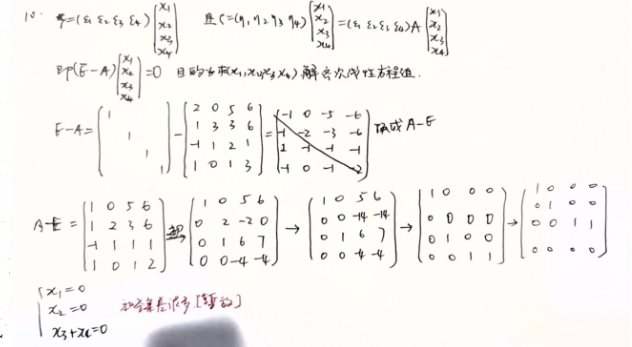 10. ξ=(ε₁ ε₂ ε₃ ε₄) [x₁ x₂ x₃ x₄] ξ=(η₁ η₂ η₃ η₄) [x₁ x₂ x₃ x₄] =(ε₁ ε₂ ε₃ ε₄) A [x₁ x₂ x₃ x₄]
即(E-A) [x₁ x₂ x₃ x₄] =0 目的 (x₁,x₂,x₃,x₄), 解齐次线性方程组.
E-A= [1 1 1 1] - [2 0 5 6; 1 3 3 6; -1 1 2 1; 1 0 1 3] = [-1 0 -5 -6; -1 -2 -3 -6; 1 -1 -1 -1; -1 0 -1 -2] 换成 A-E
A-E = [1 0 5 6; 1 2 3 6; -1 1 1 1; 1 0 1 2] [1 0 5 6; 0 2 -2 0; 0 1 6 7; 0 0 -4 -4] → [1 0 5 6; 0 0 -14 -14; 0 1 6 7; 0 0 -4 -4] → [1 0 0 0; 0 0 0 0; 0 1 0 0; 0 0 1 1] → [1 0 0 0; 0 1 0 0; 0 0 1 1; 0 0 0 0]
{ x₁=0
x₂=0
x₃+x₄=0